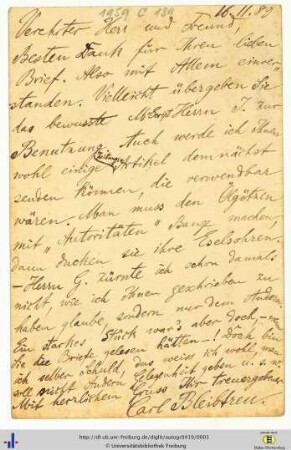 1959 C 180
16. 11. 89
Verehrter Herr und Freund,
Besten Dank für Ihren lieben
Brief. Also mit Allem einver-
standen. Vielleicht übergeben Sie
das bewusste Herrn J. zur
Benutzung. Auch werde ich Ihnen
wohl einige Zeitungs Artikel demnächst
senden können, die verwendbar
wären. Man muss den Ölgötzen
mit „Autoritäten" Bange machen,
dann ducken sie ihre Eselsohren.
– Herrn G. zürnte ich schon damals
nicht, wie ich Ihnen geschrieben zu
haben glaube, sondern nur dem Andern.
Ein starkes Stück war's aber doch,
Sie die Briefe gelesen hätten –! Doch bin
ich selber Schuld, das weiss ich wohl, man
soll nicht Andern Gelegenheit geben u. s. w.
Mit herzlichem Gruss Ihr treuergebener
Carl Bleibtreu.
http://dl.ub.uni-freiburg.de/diglit/autogr0419/0001
Universitätsbibliothek Freiburg